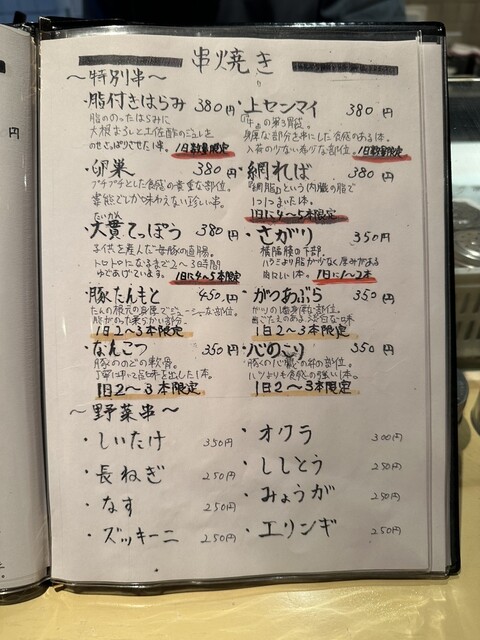 串焼き
〜特別串〜
・脂付きはらみ 380円
脂ののったはらみに
大根おろしと土佐酢のジュレを
のせさっぱりさせた1串。 1日数量限定
・上センマイ 380円
「牛」の第3胃袋。
入荷の少ない希少な部位。 1日数量限定
・卵巣 380円
プチプチとした食感の貴重な部位。
当店でしか味わえない珍しい串。
・網ればー 380円
「網脂」という内臓の脂で
1つ1つまいた1本。
1日に4〜5本限定
・大貫てっぽう 380円
子供を産んだ母豚の直腸。
トロトロになるまで2〜3時間
ゆであげています。 1日に4〜5本限定
・さがり 350円
横隔膜の下部。
ハラミより脂が少なく厚みがある
1日に1〜2本
・豚たんもと 450円
たんの根元の身厚でジューシーな部位。
脂がのった柔らかい部分。
1日2〜3本限定
・がつあぶら 350円
1日2〜3本限定
・なんこつ 350円
豚ののどの軟骨。
1日2〜3本限定
・心のこり 350円
ハツよりも食感の強い1本。
1日2〜3本限定
〜野菜串〜
・しいたけ 350円
・長ねぎ 250円
・なす 250円
・ズッキーニ 250円
・オクラ 300円
・ししとう 250円
・みょうが 250円
・エリンギ 250円
円